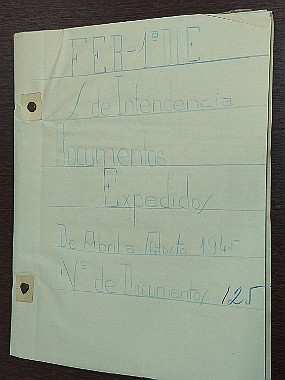 FEB-1ª DIE
S de Intendencia
Documentos
Expedidos
De Abril a Agosto 1945
Nº de Documentos 125